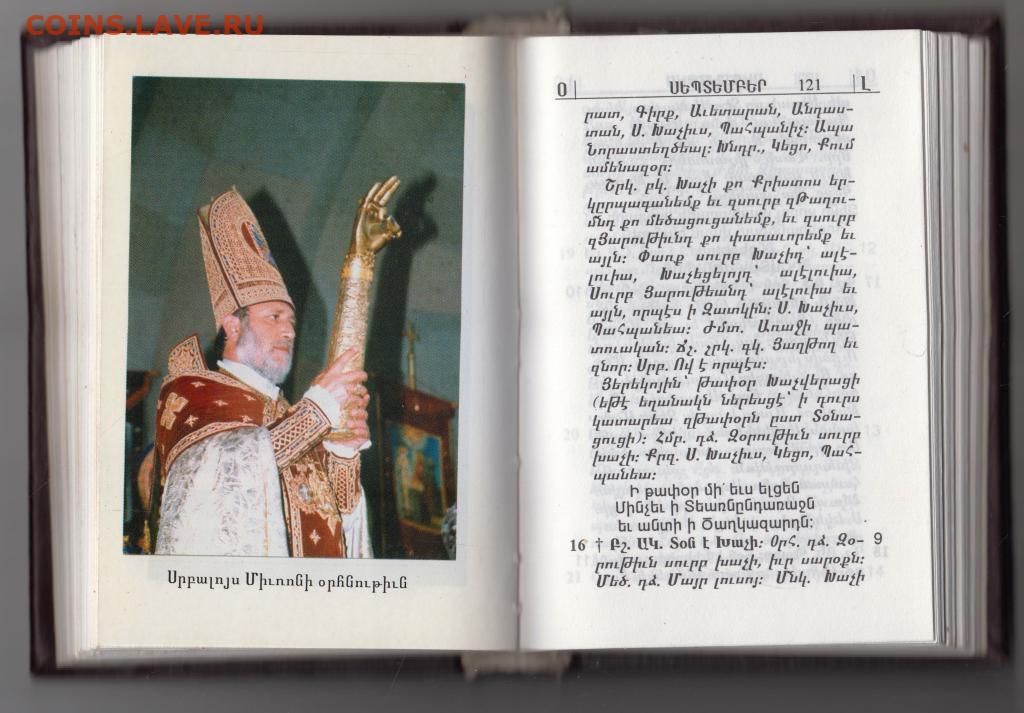 COINS.LAVE.RU
Սրբալոյս Միւռոնի օրհնութիւն
Օ ՍԵՊՏԵՄԲԵՐ 121 Լ
րատ, Գիրք, Աւետարան, Անդաս-
տան, Ս. Խաչիւս, Պահպանիչ։ Ապա
Նորաստեղծեալ։ Խնդր., Կեցո, Քում
ամենազօր։
Շրկ. բկ. Խաչի քո Քրիստոս եր-
կըրպագանեմք եւ զսուրբ զԹաղու-
մնդ քո մեծացուցանեմք, եւ զսուրբ
զՅարութիւնդ քո փառաւորեմք եւ
այլն։ Փառք սուրբ Խաչիդ՝ ալէ-
լուիա, Խաչեցելոյդ՝ ալէլուիա,
Սուրբ Յարութեանդ՝ ալէլուիա եւ
այլն, որպէս ի Զատկին։ Ս. Խաչիւս,
Պահպանեա։ Ժմտ. Առաջի պա-
տուական։ Ճշ. չրկ. գկ. Յաղթող եւ
զնոր։ Սրբ. Ով է որպէս։
Յերեկոյին՝ թափօր Խաչվերացի
(եթէ եղանակն ներեսցէ՝ ի դուրս
կատարեա զթափօրն ըստ Տօնա-
ցուցի)։ Համբ. դձ. Զօրութիւն սուրբ
խաչի։ Քրզ. Ս. Խաչիւս, Կեցո, Պահ-
պանեա։
Ի թափօր մի՛ եւս ելցեն
Մինչեւ ի Տեառնընդառաջն
եւ անտի ի Ծաղկազարդն։
16 † Բշ. ԱԿ. Տօն է Խաչի։ Օրհ. դձ. Զօ- 9
րութիւն սուրբ խաչի, իւր սարօքն։
Մեծ. դձ. Մայր լուսոյ։ Մնկ. Խաչի